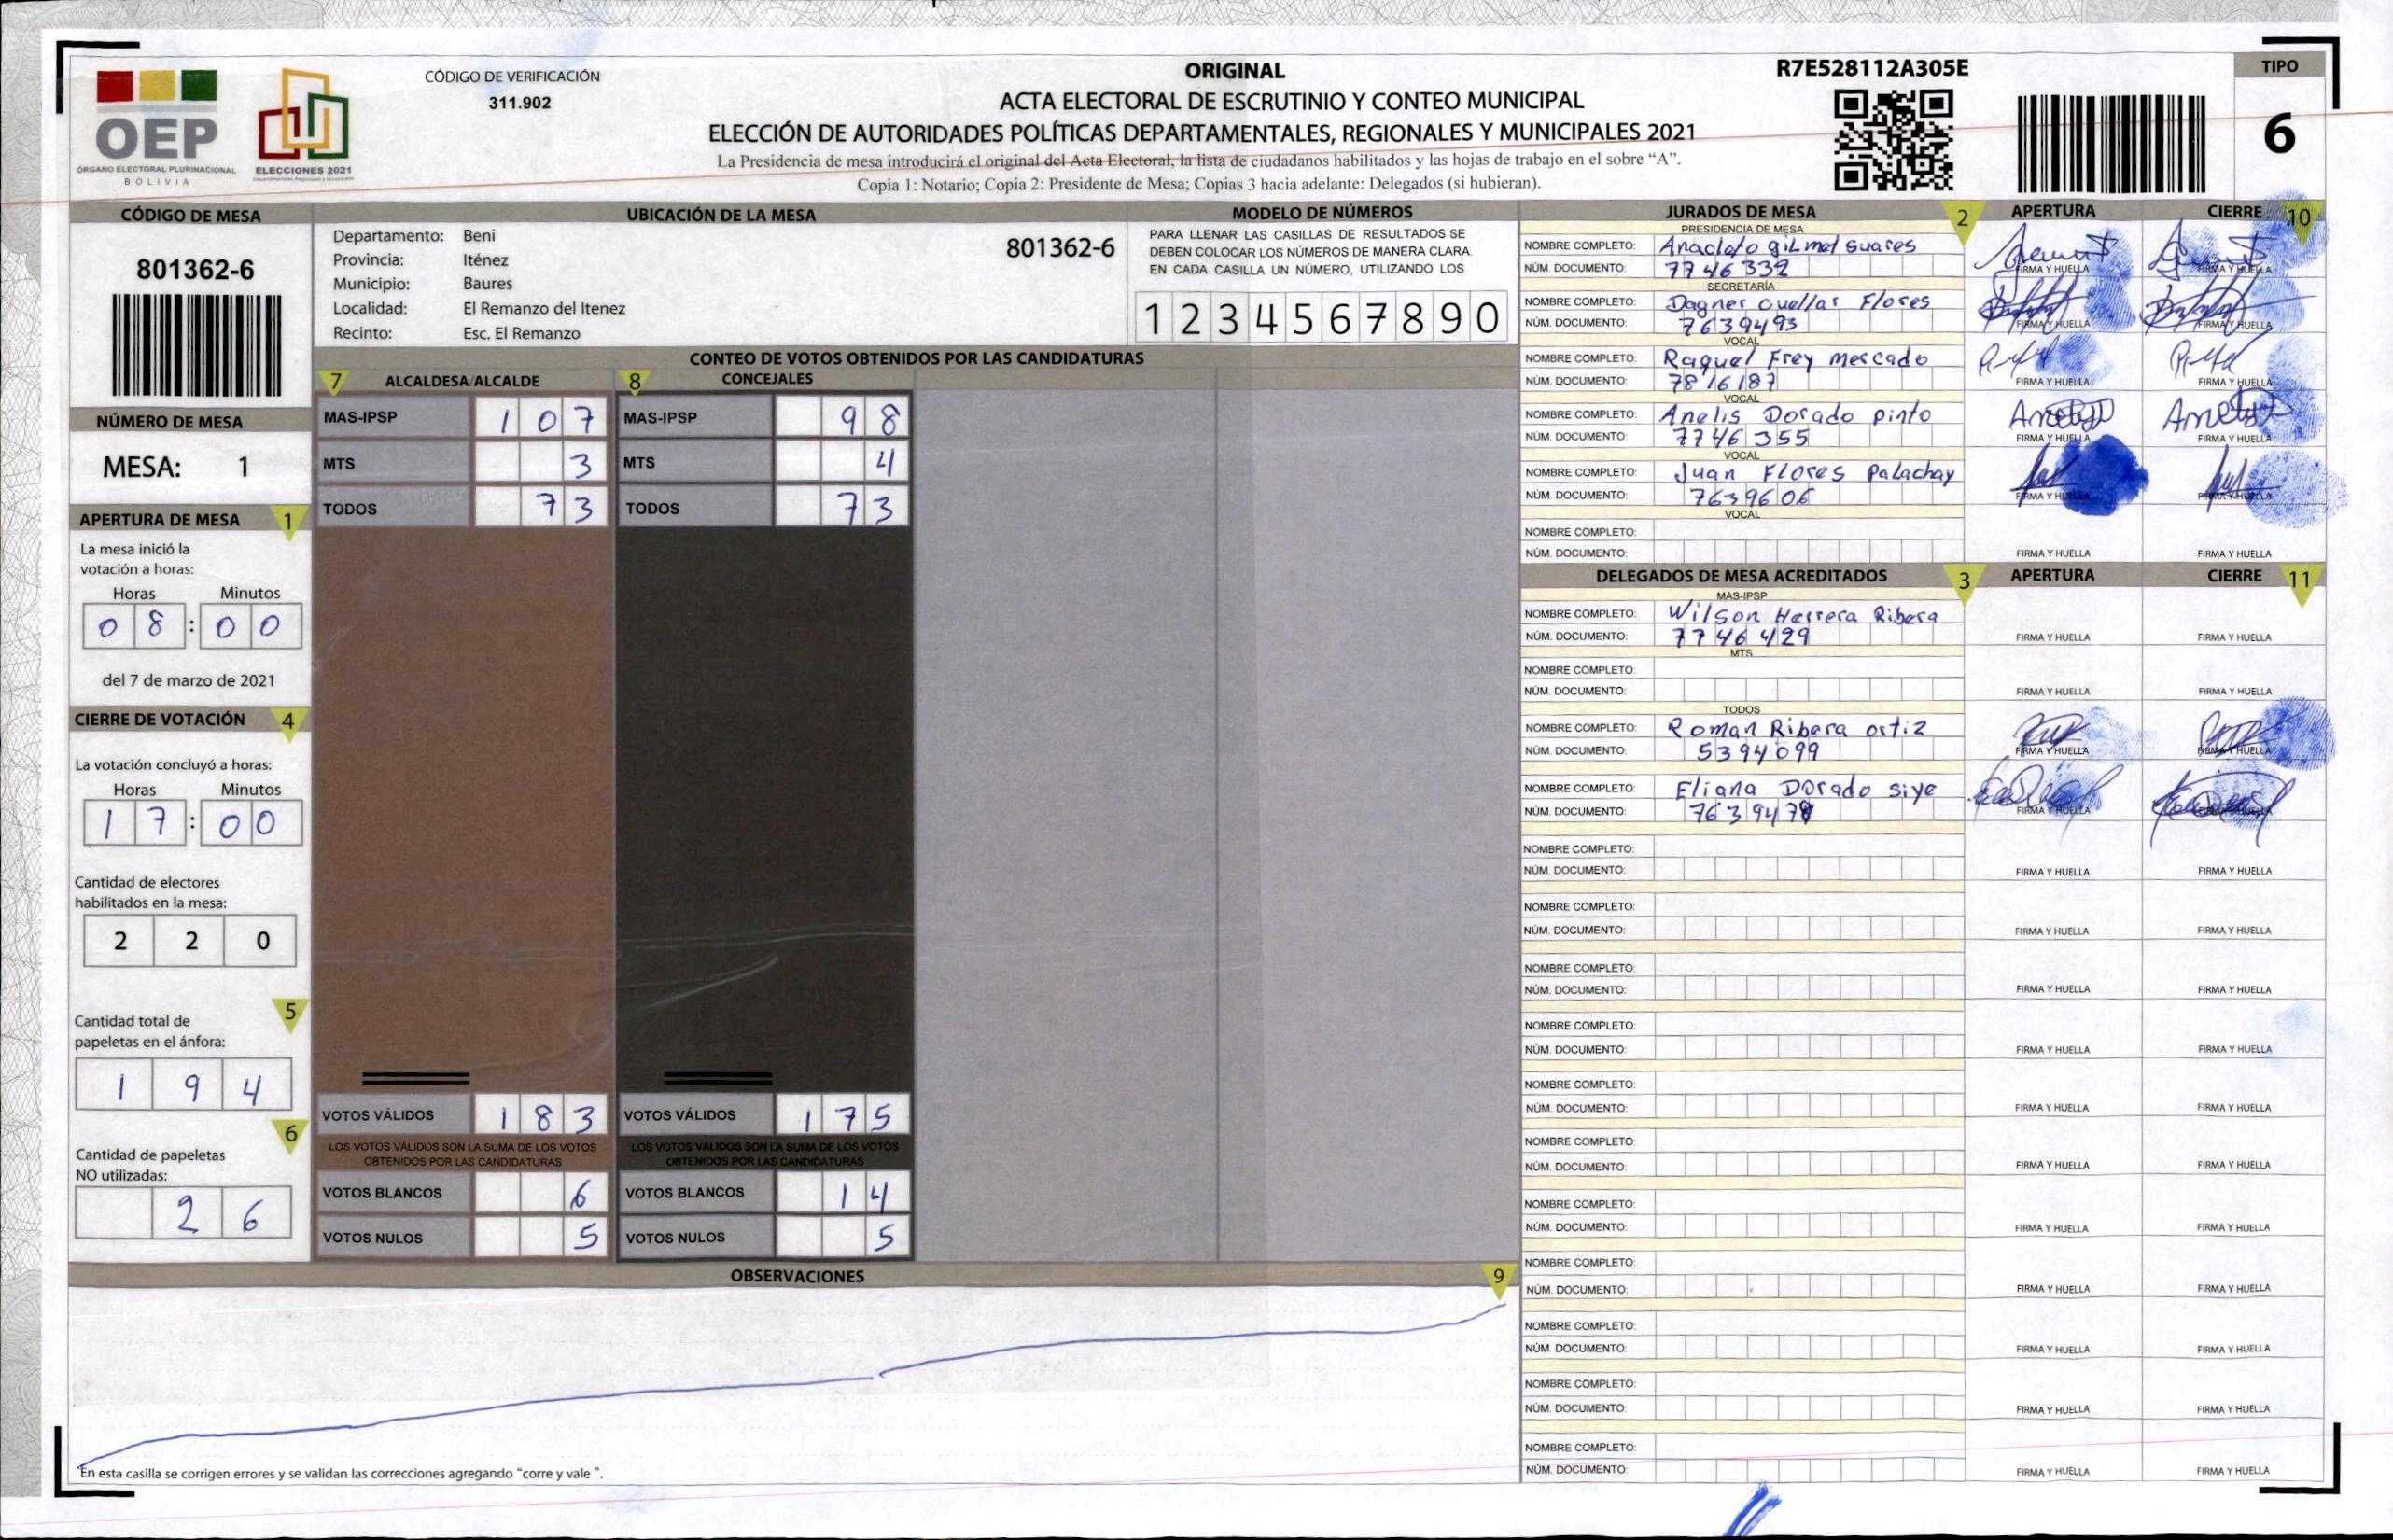 OEP
ÓRGANO ELECTORAL PLURINACIONAL
BOLIVIA
ELECCIONES 2021
CÓDIGO DE VERIFICACIÓN
311.902
ORIGINAL
ACTA ELECTORAL DE ESCRUTINIO Y CONTEO MUNICIPAL
ELECCIÓN DE AUTORIDADES POLÍTICAS DEPARTAMENTALES, REGIONALES Y MUNICIPALES 2021
La Presidencia de mesa introducirá el original del Acta Electoral, la lista de ciudadanos habilitados y las hojas de trabajo en el sobre “A”.
Copia 1: Notario; Copia 2: Presidente de Mesa; Copias 3 hacia adelante: Delegados (si hubieran).
R7E528112A305E
TIPO
6
CÓDIGO DE MESA
801362-6
NÚMERO DE MESA
MESA: 1
APERTURA DE MESA 1
La mesa inició la
votación a horas:
Horas Minutos
0 8 : 0 0
del 7 de marzo de 2021
CIERRE DE VOTACIÓN 4
La votación concluyó a horas:
Horas Minutos
1 7 : 0 0
Cantidad de electores
habilitados en la mesa:
2 2 0
5
Cantidad total de
papeletas en el ánfora:
1 9 4
6
Cantidad de papeletas
NO utilizadas:
2 6
UBICACIÓN DE LA MESA
Departamento: Beni
Provincia: Iténez
Municipio: Baures
Localidad: El Remanzo del Itenez
Recinto: Esc. El Remanzo
801362-6
MODELO DE NÚMEROS
PARA LLENAR LAS CASILLAS DE RESULTADOS SE
DEBEN COLOCAR LOS NÚMEROS DE MANERA CLARA
EN CADA CASILLA UN NÚMERO, UTILIZANDO LOS
1 2 3 4 5 6 7 8 9 0
CONTEO DE VOTOS OBTENIDOS POR LAS CANDIDATURAS
7 ALCALDESA/ALCALDE
MAS-IPSP 1 0 7
MTS 3
TODOS 7 3
VOTOS VÁLIDOS 1 8 3
LOS VOTOS VÁLIDOS SON LA SUMA DE LOS VOTOS
OBTENIDOS POR LAS CANDIDATURAS
VOTOS BLANCOS 6
VOTOS NULOS 5
8 CONCEJALES
MAS-IPSP 9 8
MTS 4
TODOS 7 3
VOTOS VÁLIDOS 1 7 5
LOS VOTOS VÁLIDOS SON LA SUMA DE LOS VOTOS
OBTENIDOS POR LAS CANDIDATURAS
VOTOS BLANCOS 1 4
VOTOS NULOS 5
OBSERVACIONES 9
En esta casilla se corrigen errores y se validan las correcciones agregando “corre y vale ”.
JURADOS DE MESA 2 APERTURA CIERRE 10
PRESIDENCIA DE MESA
NOMBRE COMPLETO: Anacleto gilmel suares
NÚM. DOCUMENTO: 7746339 FIRMA Y HUELLA FIRMA Y HUELLA
SECRETARÍA
NOMBRE COMPLETO: Dagner cuellar Flores
NÚM. DOCUMENTO: 7639493 FIRMA Y HUELLA FIRMA Y HUELLA
VOCAL
NOMBRE COMPLETO: Raquel Frey mercado
NÚM. DOCUMENTO: 7816187 FIRMA Y HUELLA FIRMA Y HUELLA
VOCAL
NOMBRE COMPLETO: Anelis Dorado pinto
NÚM. DOCUMENTO: 7746355 FIRMA Y HUELLA FIRMA Y HUELLA
VOCAL
NOMBRE COMPLETO: Juan Flores Palachay
NÚM. DOCUMENTO: 7639606 FIRMA Y HUELLA FIRMA Y HUELLA
VOCAL
NOMBRE COMPLETO:
NÚM. DOCUMENTO: FIRMA Y HUELLA FIRMA Y HUELLA
DELEGADOS DE MESA ACREDITADOS 3 APERTURA CIERRE 11
MAS-IPSP
NOMBRE COMPLETO: Wilson Herrera Ribera
NÚM. DOCUMENTO: 7746429 FIRMA Y HUELLA FIRMA Y HUELLA
MTS
NOMBRE COMPLETO:
NÚM. DOCUMENTO: FIRMA Y HUELLA FIRMA Y HUELLA
TODOS
NOMBRE COMPLETO: Roman Ribera ortiz
NÚM. DOCUMENTO: 5394099 FIRMA Y HUELLA FIRMA Y HUELLA
NOMBRE COMPLETO: Eliana Dorado siye
NÚM. DOCUMENTO: FIRMA Y HUELLA FIRMA Y HUELLA
NOMBRE COMPLETO:
NÚM. DOCUMENTO: FIRMA Y HUELLA FIRMA Y HUELLA
NOMBRE COMPLETO:
NÚM. DOCUMENTO: FIRMA Y HUELLA FIRMA Y HUELLA
NOMBRE COMPLETO:
NÚM. DOCUMENTO: FIRMA Y HUELLA FIRMA Y HUELLA
NOMBRE COMPLETO:
NÚM. DOCUMENTO: FIRMA Y HUELLA FIRMA Y HUELLA
NOMBRE COMPLETO:
NÚM. DOCUMENTO: FIRMA Y HUELLA FIRMA Y HUELLA
NOMBRE COMPLETO:
NÚM. DOCUMENTO: FIRMA Y HUELLA FIRMA Y HUELLA
NOMBRE COMPLETO:
NÚM. DOCUMENTO: FIRMA Y HUELLA FIRMA Y HUELLA
NOMBRE COMPLETO:
NÚM. DOCUMENTO: FIRMA Y HUELLA FIRMA Y HUELLA
NOMBRE COMPLETO:
NÚM. DOCUMENTO: FIRMA Y HUELLA FIRMA Y HUELLA
NOMBRE COMPLETO:
NÚM. DOCUMENTO: FIRMA Y HUELLA FIRMA Y HUELLA
NOMBRE COMPLETO:
NÚM. DOCUMENTO: FIRMA Y HUELLA FIRMA Y HUELLA